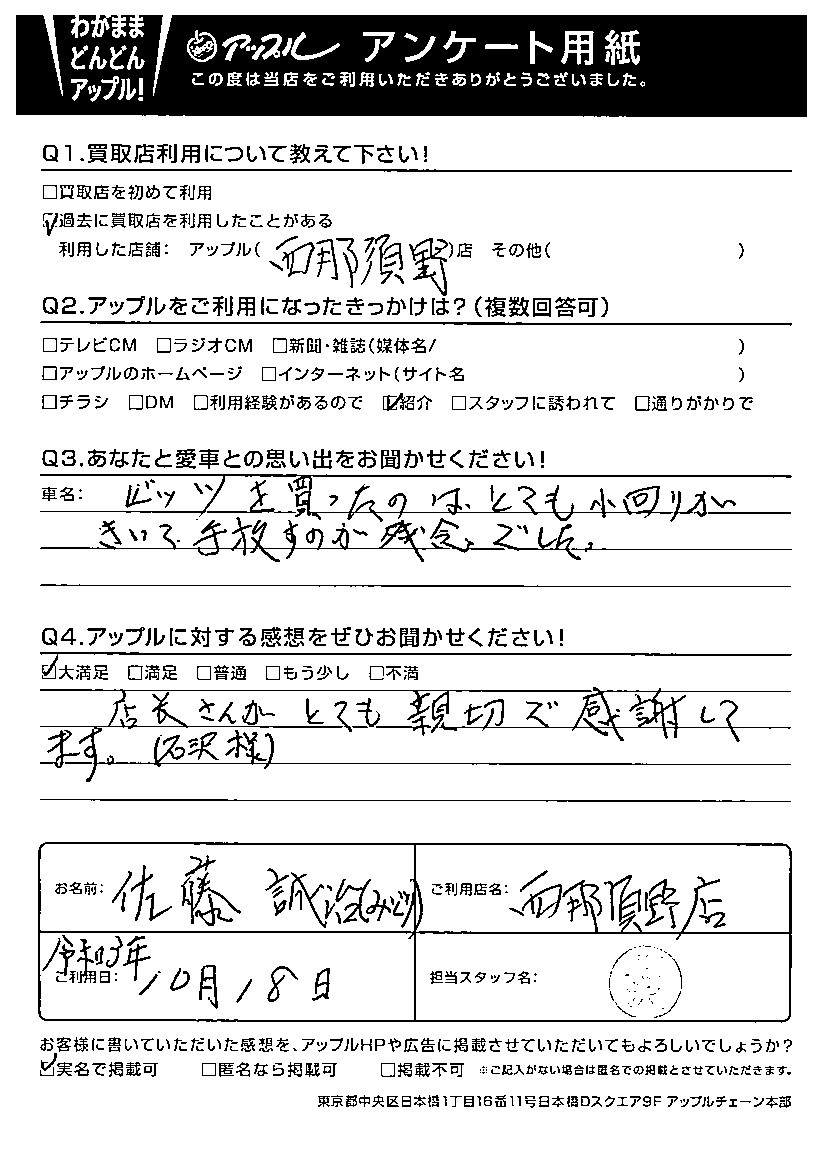 わがまま
どんどん
アップル!
アップル アンケート用紙
この度は当店をご利用いただきありがとうございました。
Q1.買取店利用について教えて下さい!
□買取店を初めて利用
☑過去に買取店を利用したことがある
利用した店舗: アップル(西那須野)店 その他( )
Q2.アップルをご利用になったきっかけは?(複数回答可)
□テレビCM □ラジオCM □新聞・雑誌(媒体名/ )
□アップルのホームページ □インターネット(サイト名 )
□チラシ □DM □利用経験があるので ☑紹介 □スタッフに誘われて □通りがかりで
Q3.あなたと愛車との思い出をお聞かせください!
車名: ビッツを買ったのは、とても小回りが
きいて手放すのが残念でした。
Q4.アップルに対する感想をぜひお聞かせください!
☑大満足 □満足 □普通 □もう少し □不満
店長さんがとても親切で感謝して
ます。(石沢様)
お名前: 佐藤 誠治(みどり) ご利用店名: 西那須野店
令和3年
ご利用日: 10月18日 担当スタッフ名:
お客様に書いていただいた感想を、アップルHPや広告に掲載させていただいてもよろしいでしょうか?
☑実名で掲載可 □匿名なら掲載可 □掲載不可 ※ご記入がない場合は匿名での掲載とさせていただきます。
東京都中央区日本橋1丁目16番11号日本橋Dスクエア9F アップルチェーン本部